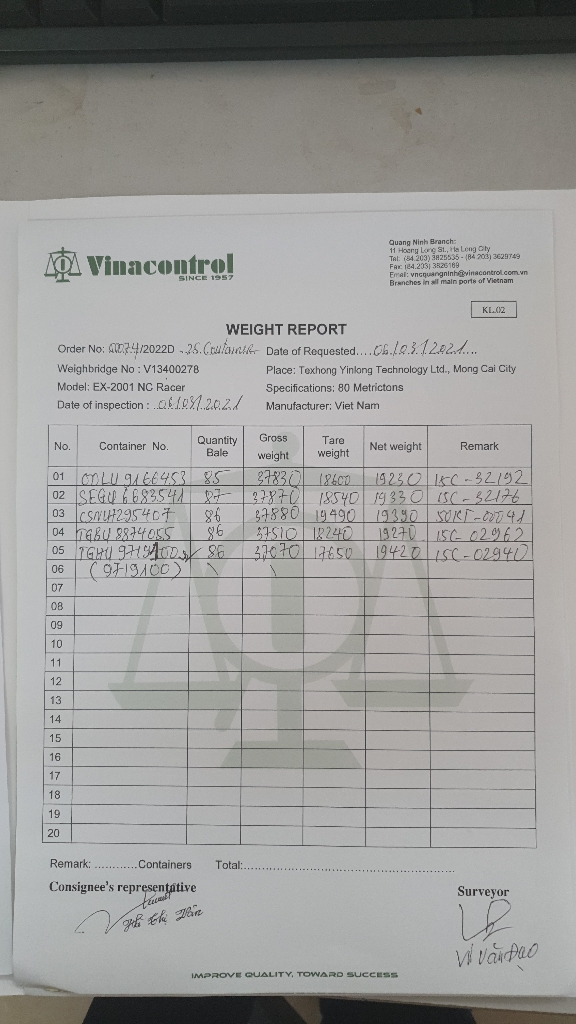 Vinacontrol
SINCE 1957
Quang Ninh Branch:
11 Hoang Long St., Ha Long City
Tel: (84.203) 3825535 - (84.203) 3629749
Fax: (84.203) 3826169
Email: vncquangninh@vinacontrol.com.vn
Branches in all main ports of Vietnam
KL.02
WEIGHT REPORT
Order No: 00074/2022D - 25.Container Date of Requested....06/03/2021....
Weighbridge No : V13400278 Place: Texhong Yinlong Technology Ltd., Mong Cai City
Model: EX-2001 NC Racer Specifications: 80 Metrictons
Date of inspection : 06/03/2021 Manufacturer: Viet Nam
No. Container No. Quantity Bale Gross weight Tare weight Net weight Remark
01 85 37830 18600 19230 15C-32192
02 SEGU 6683541 87 37870 18540 19330 15C-32176
03 86 37880 19490 19390
04 TGBU 8874055 86 37510 18240 19270 15C-02962
05 86 37070 17650 19420 15C-02940
06 (9719100) \ \
07
08
09
10
11
12
13
14
15
16
17
18
19
20
Remark: ............Containers Total:..........................................................
Consignee's representative Surveyor
Vi Văn Đạo
IMPROVE QUALITY, TOWARD SUCCESS